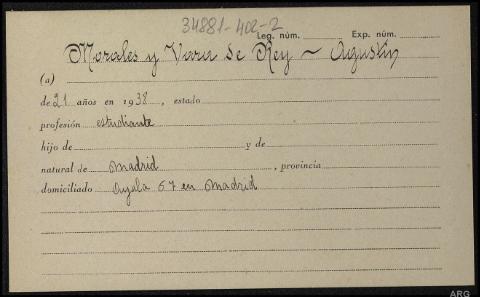 34881-402-2
Leg. núm. Exp. núm.
Morales y Vara de Rey - Agustín
(a)
de 21 años en 1938, estado
profesión estudiante
hijo de y de
natural de Madrid, provincia
domiciliado Ayala 67 en Madrid
ARG